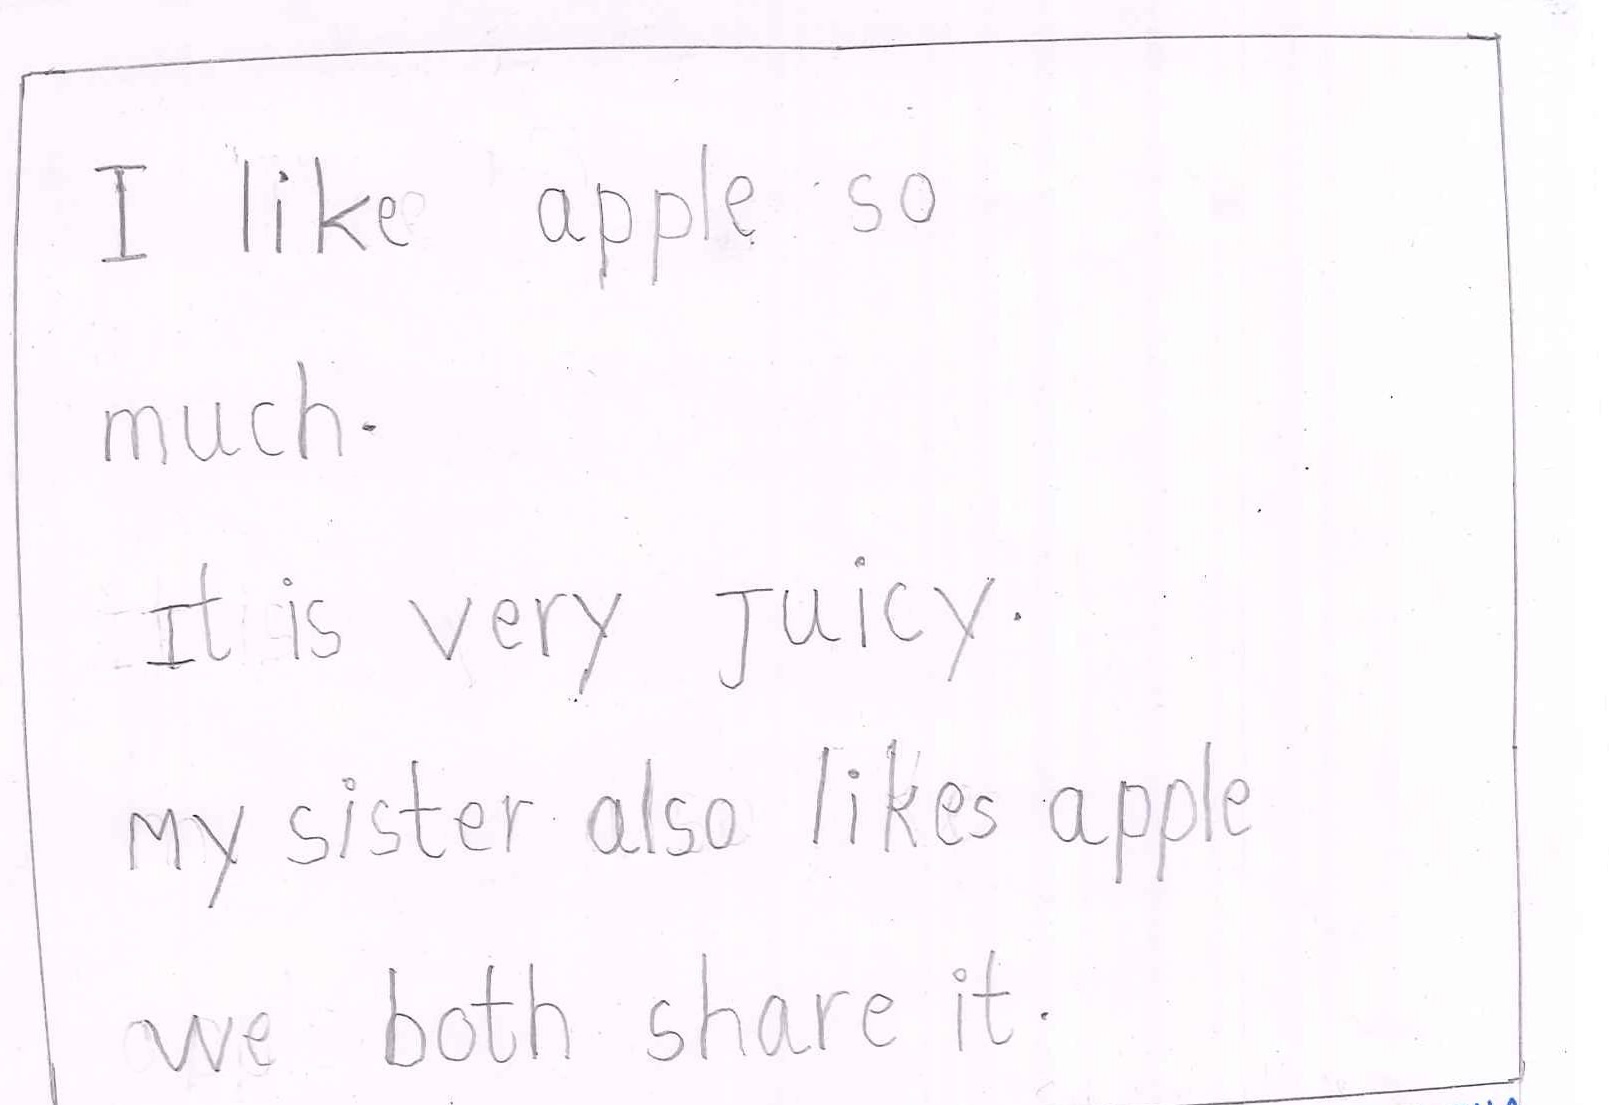 I like apple so
much.
It is very Juicy.
My sister also likes apple
we both share it.